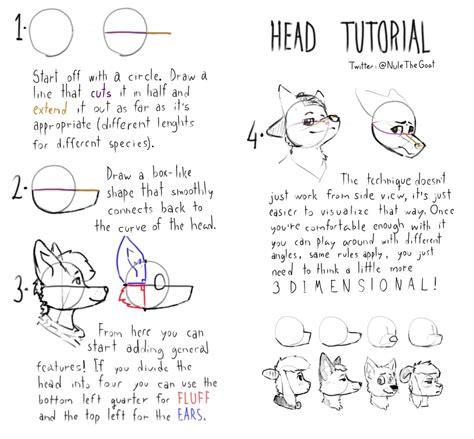 1.
Start off with a circle. Draw a
line that cuts it in half and
extend it out as far as it's
appropriate (different lenghts
for different species).
2.
Draw a box-like
shape that smoothly
connects back to
the curve of the head.
3.
From here you can
start adding general
features! If you divide the
head into four you can use the
bottom left quarter for FLUFF
and the top left for the EARS.
HEAD TUTORIAL
Twitter: @NuleTheGoat
4.
The technique doesn't
just work from side view, it's just
easier to visualize that way. Once
you're comfortable enough with it
you can play around with different
angles, same rules apply, you just
need to think a little more
3 DIMENSIONAL!